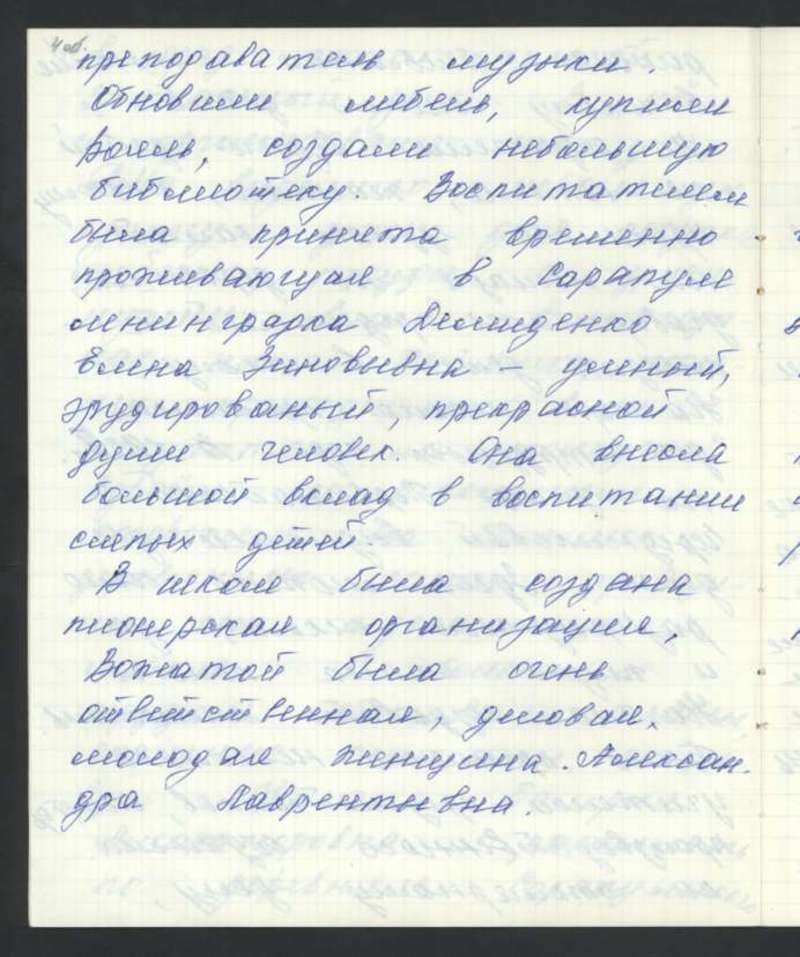 4 об.
преподаватель музыки.
Обновили мебель, купили
рояль, создали небольшую
библиотеку. Воспитателем
была принята временно
проживающая в Сарапуле
ленинградка Демиденко
Елена Зиновьевна – умный,
эрудированый, прекрасной
души человек. Она внесла
большой вклад в воспитании
слепых детей
В школе была создана
пионерская организация,
Вожатой была очень
ответственная, деловая,
молодая женщина. Алексан-
дра Лаврентьевна.